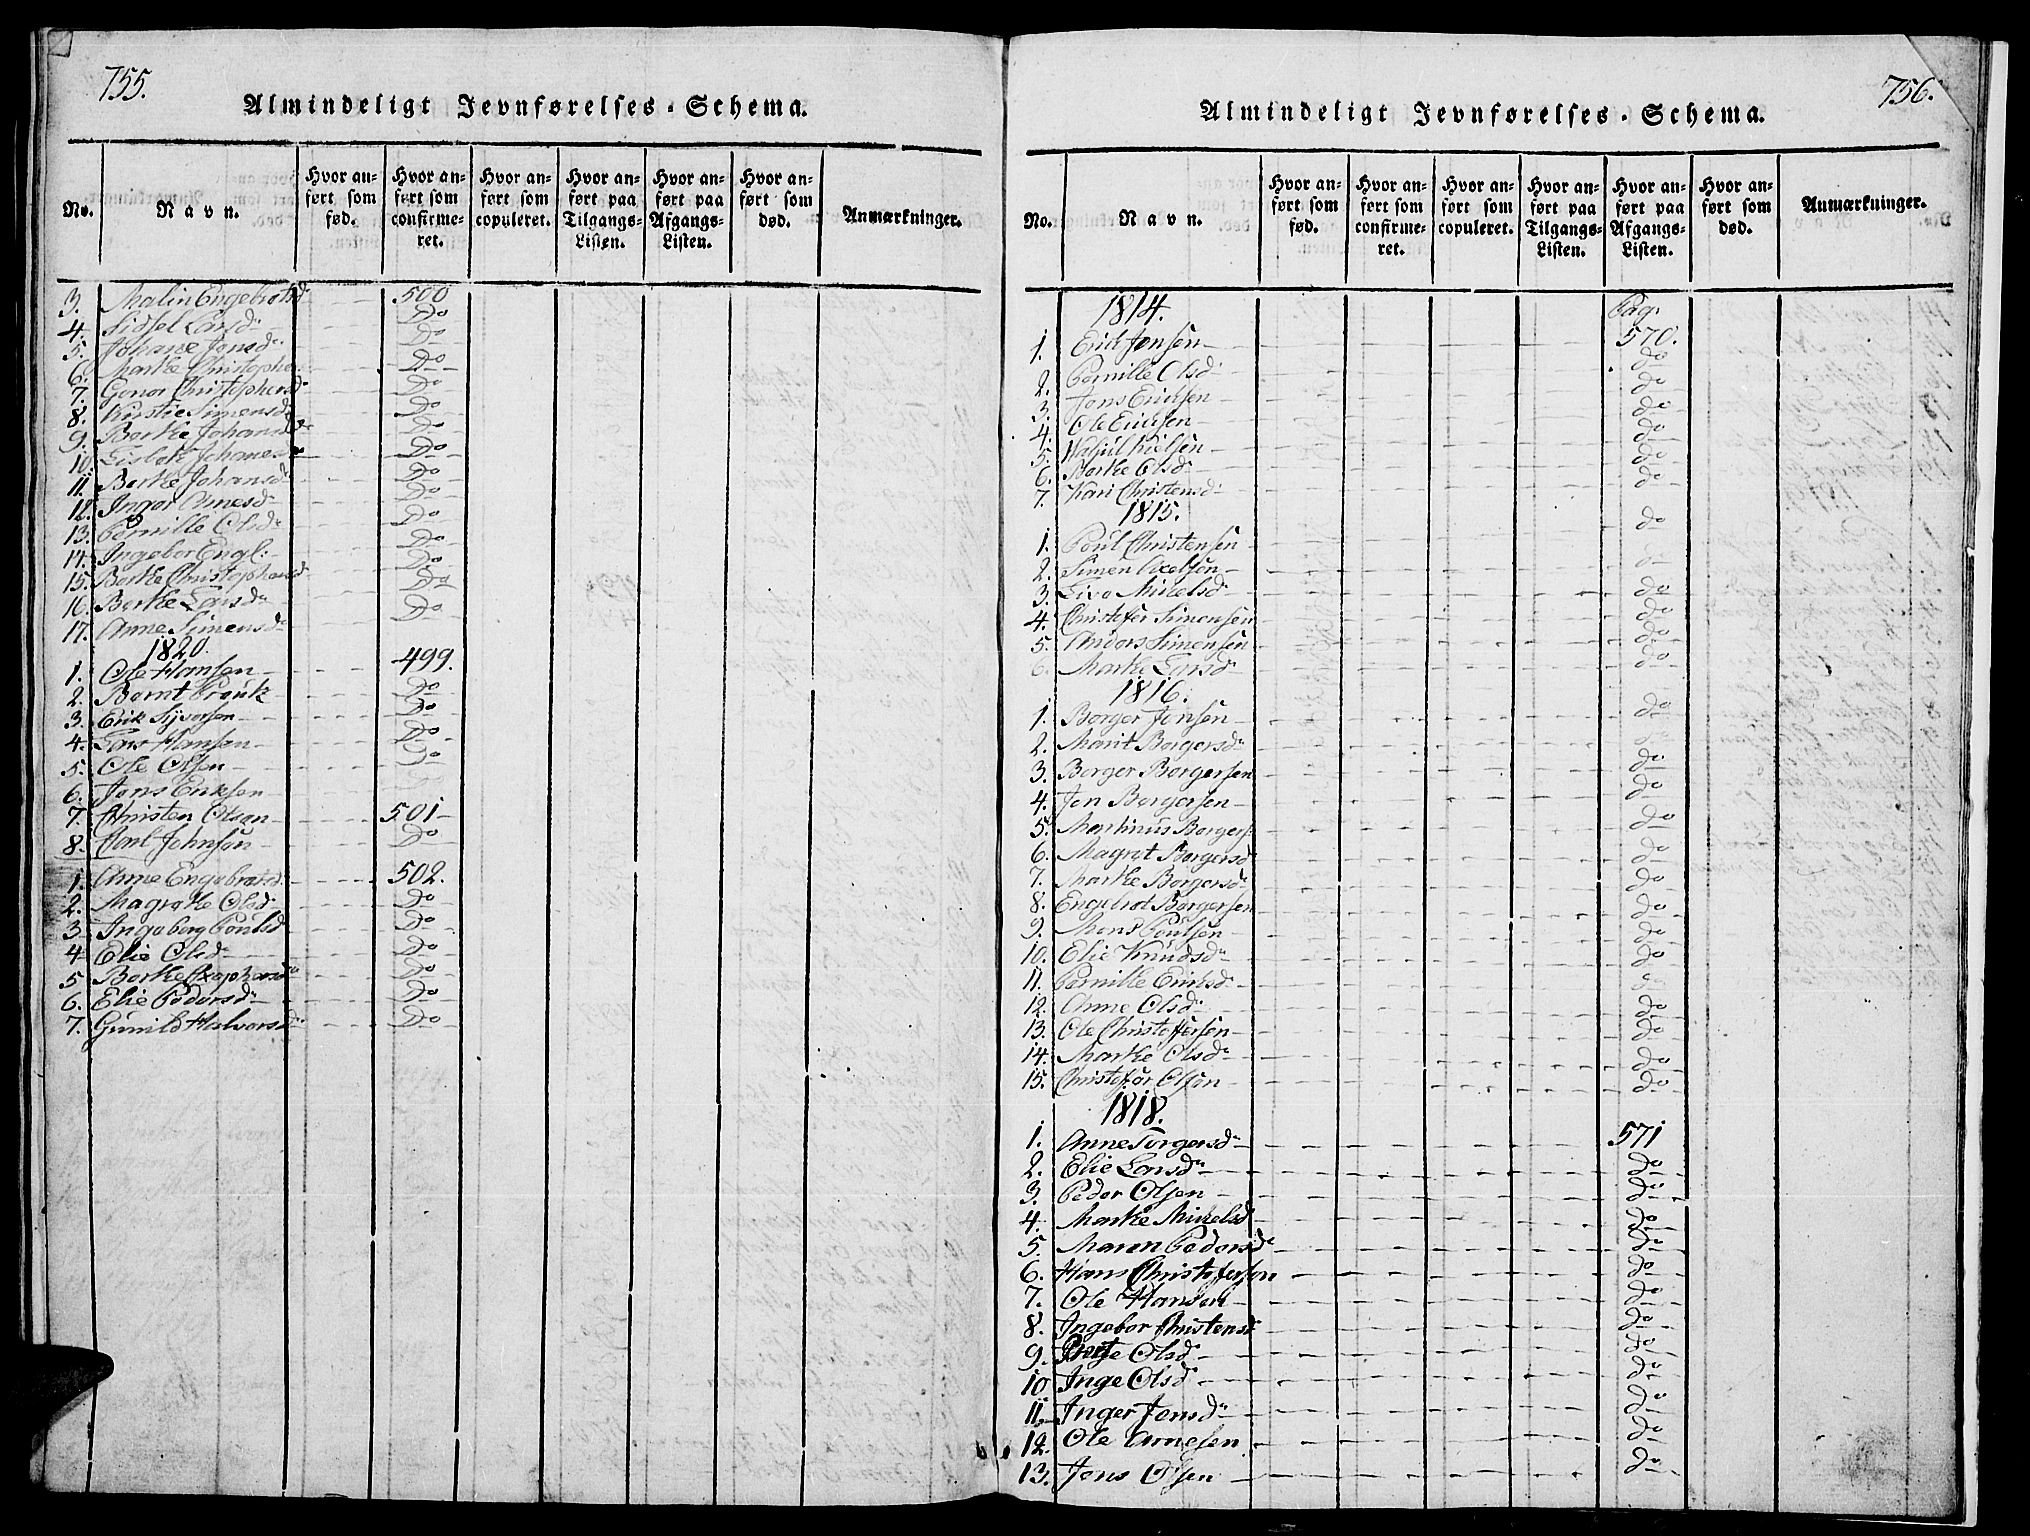 755.
Almindeligt Jevnførelses-Schema.
No. Navn. Hvor anført som fød. Hvor anført som confirmeret. Hvor anført som copuleret. Hvor anført paa Tilgangs-Listen. Hvor anført paa Afgangs-Listen. Hvor anført som død. Anmærkninger.
3. Malin Engebrotsd 500
4. Sidsel Larsd Do
5. Johane Jonsd Do
6. Marthe Christophe Do
7. Gonor Christophersd Do
8. Kirstie Simensd Do
9. Berthe Johansd Do
10. Lisbet Johanes Do
11. Berthe Johansd Do
12. Inger Arnesd Do
13. Pernille Olsd Do
14. Ingebor Engl: Do
15. Berthe Christophersd Do
16. Berthe Larsd Do
17. Anne Simensd Do
1820.
1. Ole Hansen 499.
2. Bernt Do
3. Erik Syversen Do
4. Lars Hansen Do
5. Ole Olsen Do
6. Jens Eriksen Do
7. Christen Olsen 501
8. Carl Johnsen Do
1. Anne Engebretsd. 502.
2. Magrethe Olsd Do
3. Ingeborg Poulsd Do
4. Elie Olsd Do
5. Berthe Do
6. Elie Pedersd Do
7. Gunild Halvorsd Do
756.
Almindeligt Jevnførelses-Schema.
No. Navn. Hvor anført som fød. Hvor anført som confirmeret. Hvor anført som copuleret. Hvor anført paa Tilgangs-Listen. Hvor anført paa Afgangs-Listen. Hvor anført som død. Anmærkninger.
1814. Pag.
1. Erick Jensen 570.
2. Pernille Olsd do
3. Jens Ericksen do
4. Ole Ericksen do
5. do
6. Berthe Olsd do
7. Kari Christensd do
1815.
1. Poul Christensen do
2. Simen Axelsen do
3. Live Mikelsd do
4. Christofer Simensen do
5. Anders Simensen do
6. Marthe Larsd do
1816.
1. Borger Jensen do
2. Marit Borgersd do
3. Borger Borgersen do
4. Jen Borgersen do
5. Martinus Borgers do
6. Magret Borgersd do
7. Marthe Borgersd do
8. Engebret Borgersen do
9. Mons Poulsen do
10. Elie Knudsd do
11. Pernille Eriksd do
12. Anne Olsd do
13. Ole Christoffersen do
14. Marthe Olsd do
15. Christofer Olsen do
1818.
1. Anne Torgersd 571
2. Elie Larsd do
3. Peder Olsen do
4. Marthe Mikelsd do
5. Maren Pedersd do
6. Hans Christofersen do
7. Ole Hansen do
8. Ingebor Christensd do
9. Olsd do
10 Inge Olsd do
11. Inger Jensd do
12. Ole Arnesen do
13. Jens Olsen do